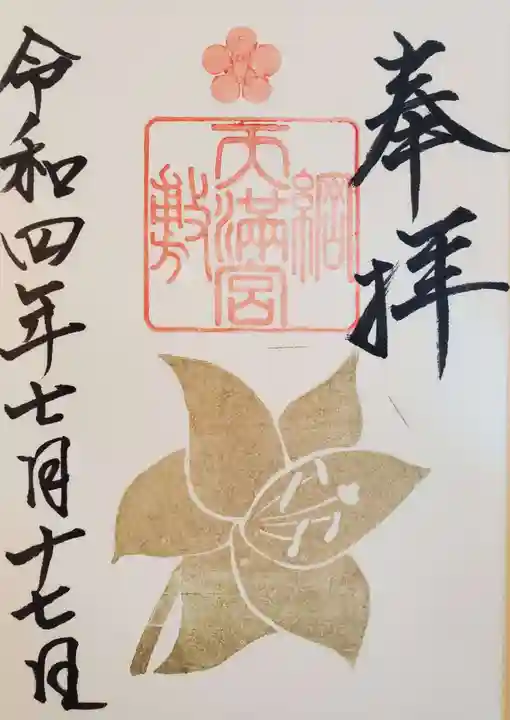 奉拝
綱敷
天満宮
令和四年七月十七日